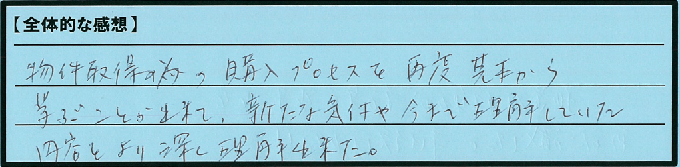 【全体的な感想】
物件取得の為の購入プロセスを再度基本から
学ぶことが出来て、新たな気付や今まで理解していた
内容をより深く理解出来た。